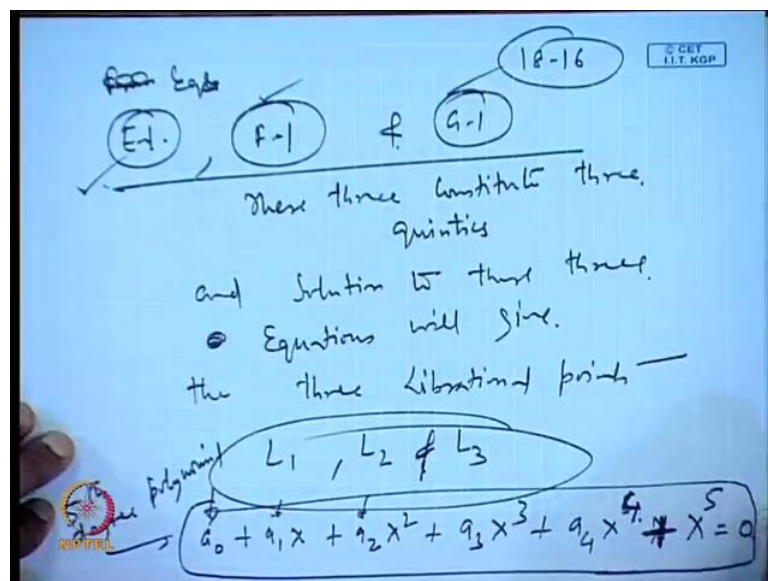 18-16
© CET
I.I.T. KGP
Eqs
E-1, F-1 & G-1
These three constitute three
quintics
and solution to these three
Equations will give
the three Librational points
L1, L2 & L3
5th degree polynomial
a0 + a1x + a2x² + a3x³ + a4x⁴ + x⁵ = 0
NPTEL